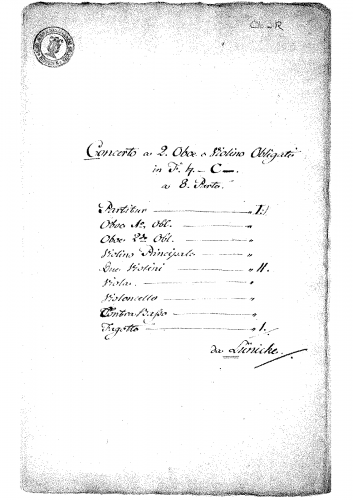 Concerto a 2. Oboe e Violino Obligati
in F. ♮. – C –.
a 8. Parti.
Partitur — I.
Oboe 1mo Obl. — "
Oboe 2do Obl. — "
Violino Principale — "
Due Violini — II.
Viola — "
Violoncello — "
Contra Basso — "
Fagotto — I.
da Lünicke.